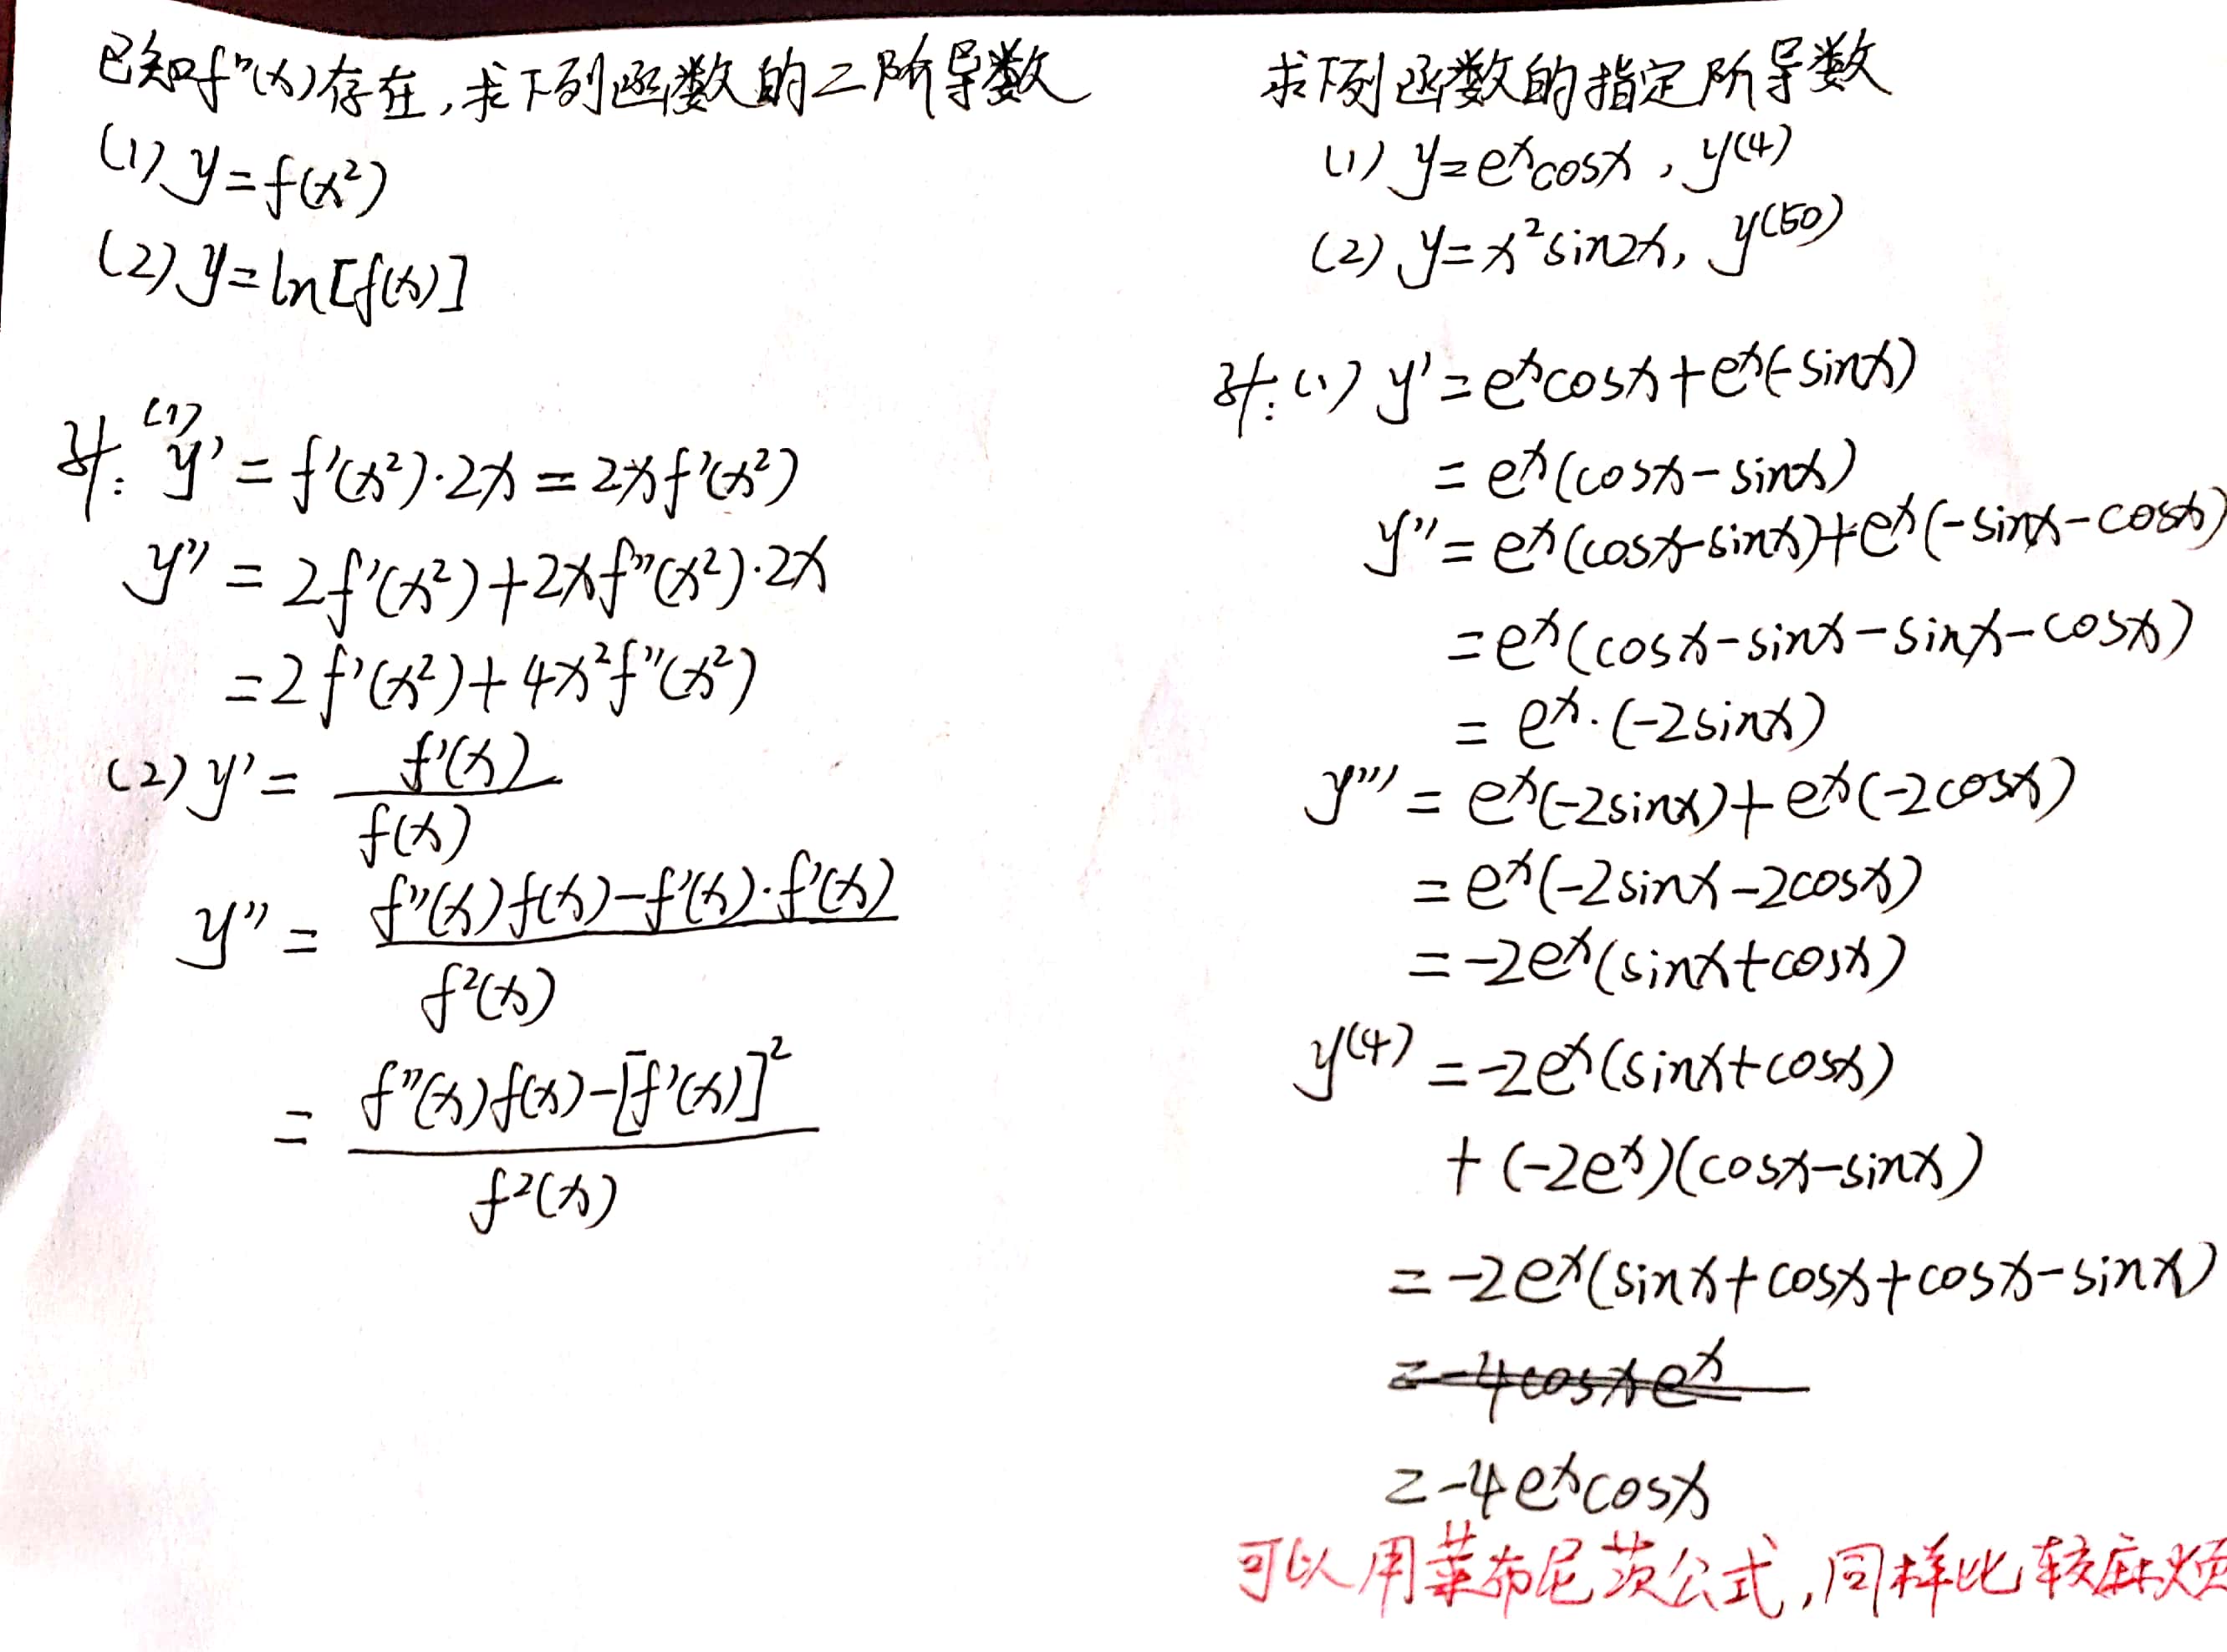 已知f''(x)存在,求下列函数的二阶导数
(1) y=f(x²)
(2) y=ln[f(x)]
解: (1) y'=f'(x²)·2x=2xf'(x²)
y''=2f'(x²)+2xf''(x²)·2x
=2f'(x²)+4x²f''(x²)
(2) y'= f'(x)/f(x)
y''= f''(x)f(x)-f'(x)·f'(x)/f²(x)
= f''(x)f(x)-[f'(x)]²/f²(x)
求下列函数的指定阶导数
(1) y=eˣcosx, y⁽⁴⁾
(2) y=x²sin2x, y⁽⁵⁰⁾
解: (1) y'=eˣcosx+eˣ(-sinx)
=eˣ(cosx-sinx)
y''=eˣ(cosx-sinx)+eˣ(-sinx-cosx)
=eˣ(cosx-sinx-sinx-cosx)
=eˣ·(-2sinx)
y'''=eˣ(-2sinx)+eˣ(-2cosx)
=eˣ(-2sinx-2cosx)
=-2eˣ(sinx+cosx)
y⁽⁴⁾=-2eˣ(sinx+cosx)
+(-2eˣ)(cosx-sinx)
=-2eˣ(sinx+cosx+cosx-sinx)
=-4cosxeˣ
=-4eˣcosx
可以用莱布尼茨公式,同样比较麻烦